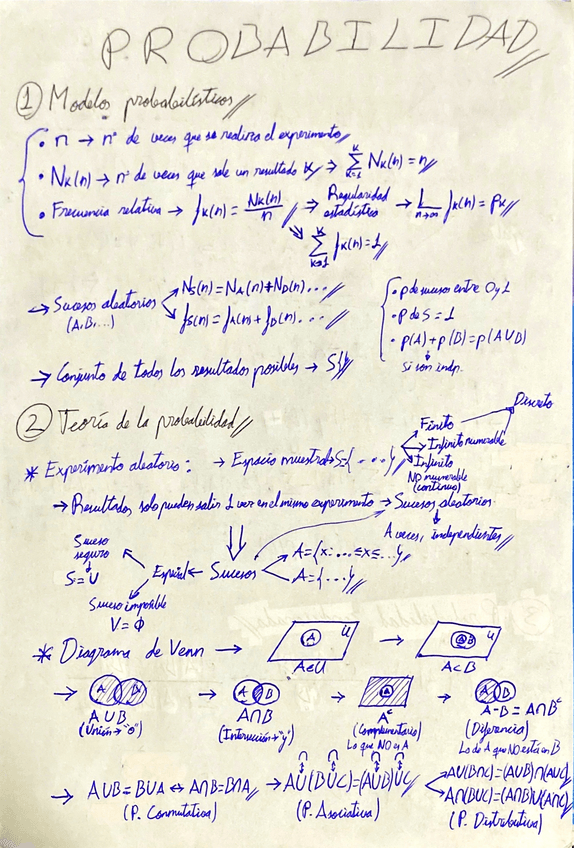 PROBABILIDAD
① Modelos probabilísticos
• n → nº de veces que se realiza el experimento
• Nk(n) → nº de veces que sale un resultado k → ∑ₖ₌₁ᴷ Nk(n) = n
• Frecuencia relativa → fk(n) = Nk(n)/n → Regularidad estadística → L n→∞ fk(n) = Pk
∑ₖ₌₁ᴷ fk(n) = 1
→ Sucesos aleatorios (A, B, ...)
Ns(n) = NA(n) + ND(n)...
fs(n) = fA(n) + fD(n)...
• p de sucesos entre 0 y 1
• p de S = 1
• p(A) + p(B) = p(A∪B)
si son indp.
→ Conjunto de todos los resultados posibles → S
② Teoría de la probabilidad
* Experimento aleatorio: → Espacio muestral → S={...}
Finito
Infinito numerable
Discreto
Infinito NO numerable (continuo)
→ Resultados solo pueden salir 1 vez en el mismo experimento → Sucesos aleatorios
A veces, independientes
Suceso seguro
S=U
Especial ← Sucesos
A={x:...≤x≤...}
A={...}
Suceso imposible
V=Ø
* Diagrama de Venn →
A U
A∈U
→
A B U
A⊂B
→ A B
A∪B
(Unión→"o")
→ A B
A∩B
(Intersección→"y")
→ A
Aᶜ
(Complementario)
Lo que NO es A
→ A B
A-B = A∩Bᶜ
(Diferencia)
Lo de A que NO está en B
→ A∪B=B∪A ↔ A∩B=B∩A
(P. Conmutativa)
→ A∪(B∪C)=(A∪B)∪C
∩ ∩ ∩ ∩
(P. Asociativa)
A∪(B∩C)=(A∪B)∩(A∪C)
A∩(B∪C)=(A∩B)∪(A∩C)
(P. Distributiva)